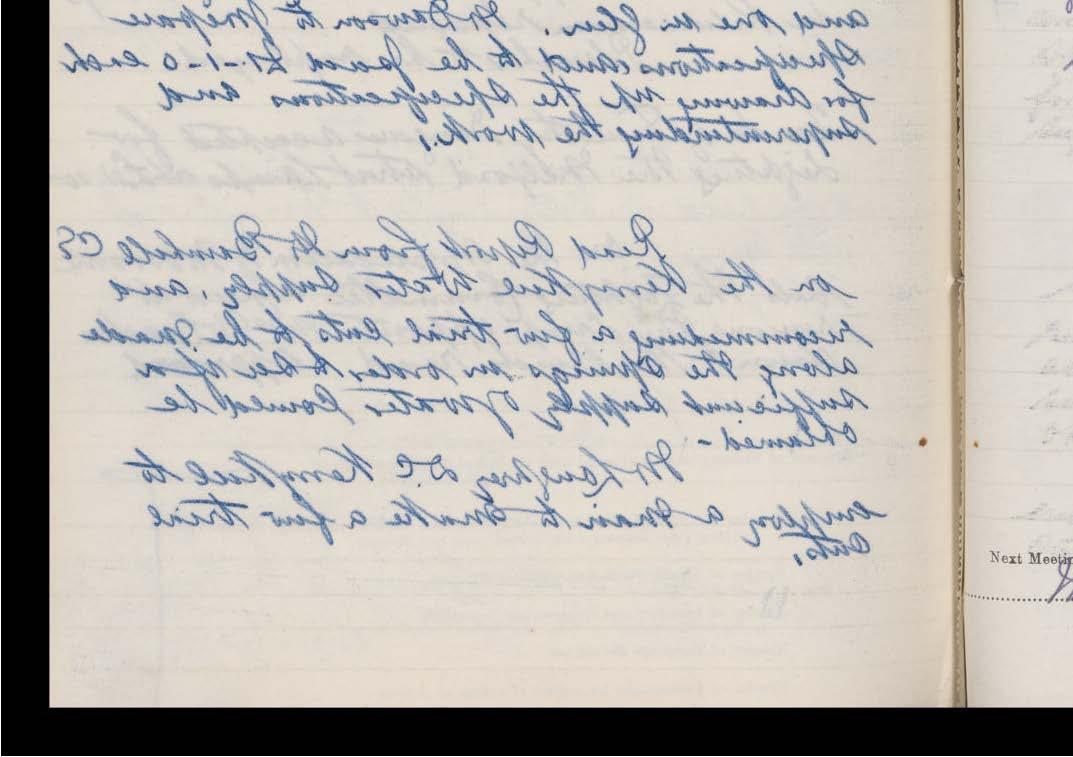 and one in Glen. Mr Dawson to prepare
Specifications and to be paid £1-1-0 each
for drawing up the Specifications and
superintending the work.
Read Report from Mr Dunhill CE
on the Kerrykeel Water Supply, and
recommending a few trial cuts to be made
along the Springs in order to see if a
sufficient supply of water could be
obtained -
Mr Loughrey D.C. Kerrykeel to
employ a man to make a few trial
cuts.
Next Meetin